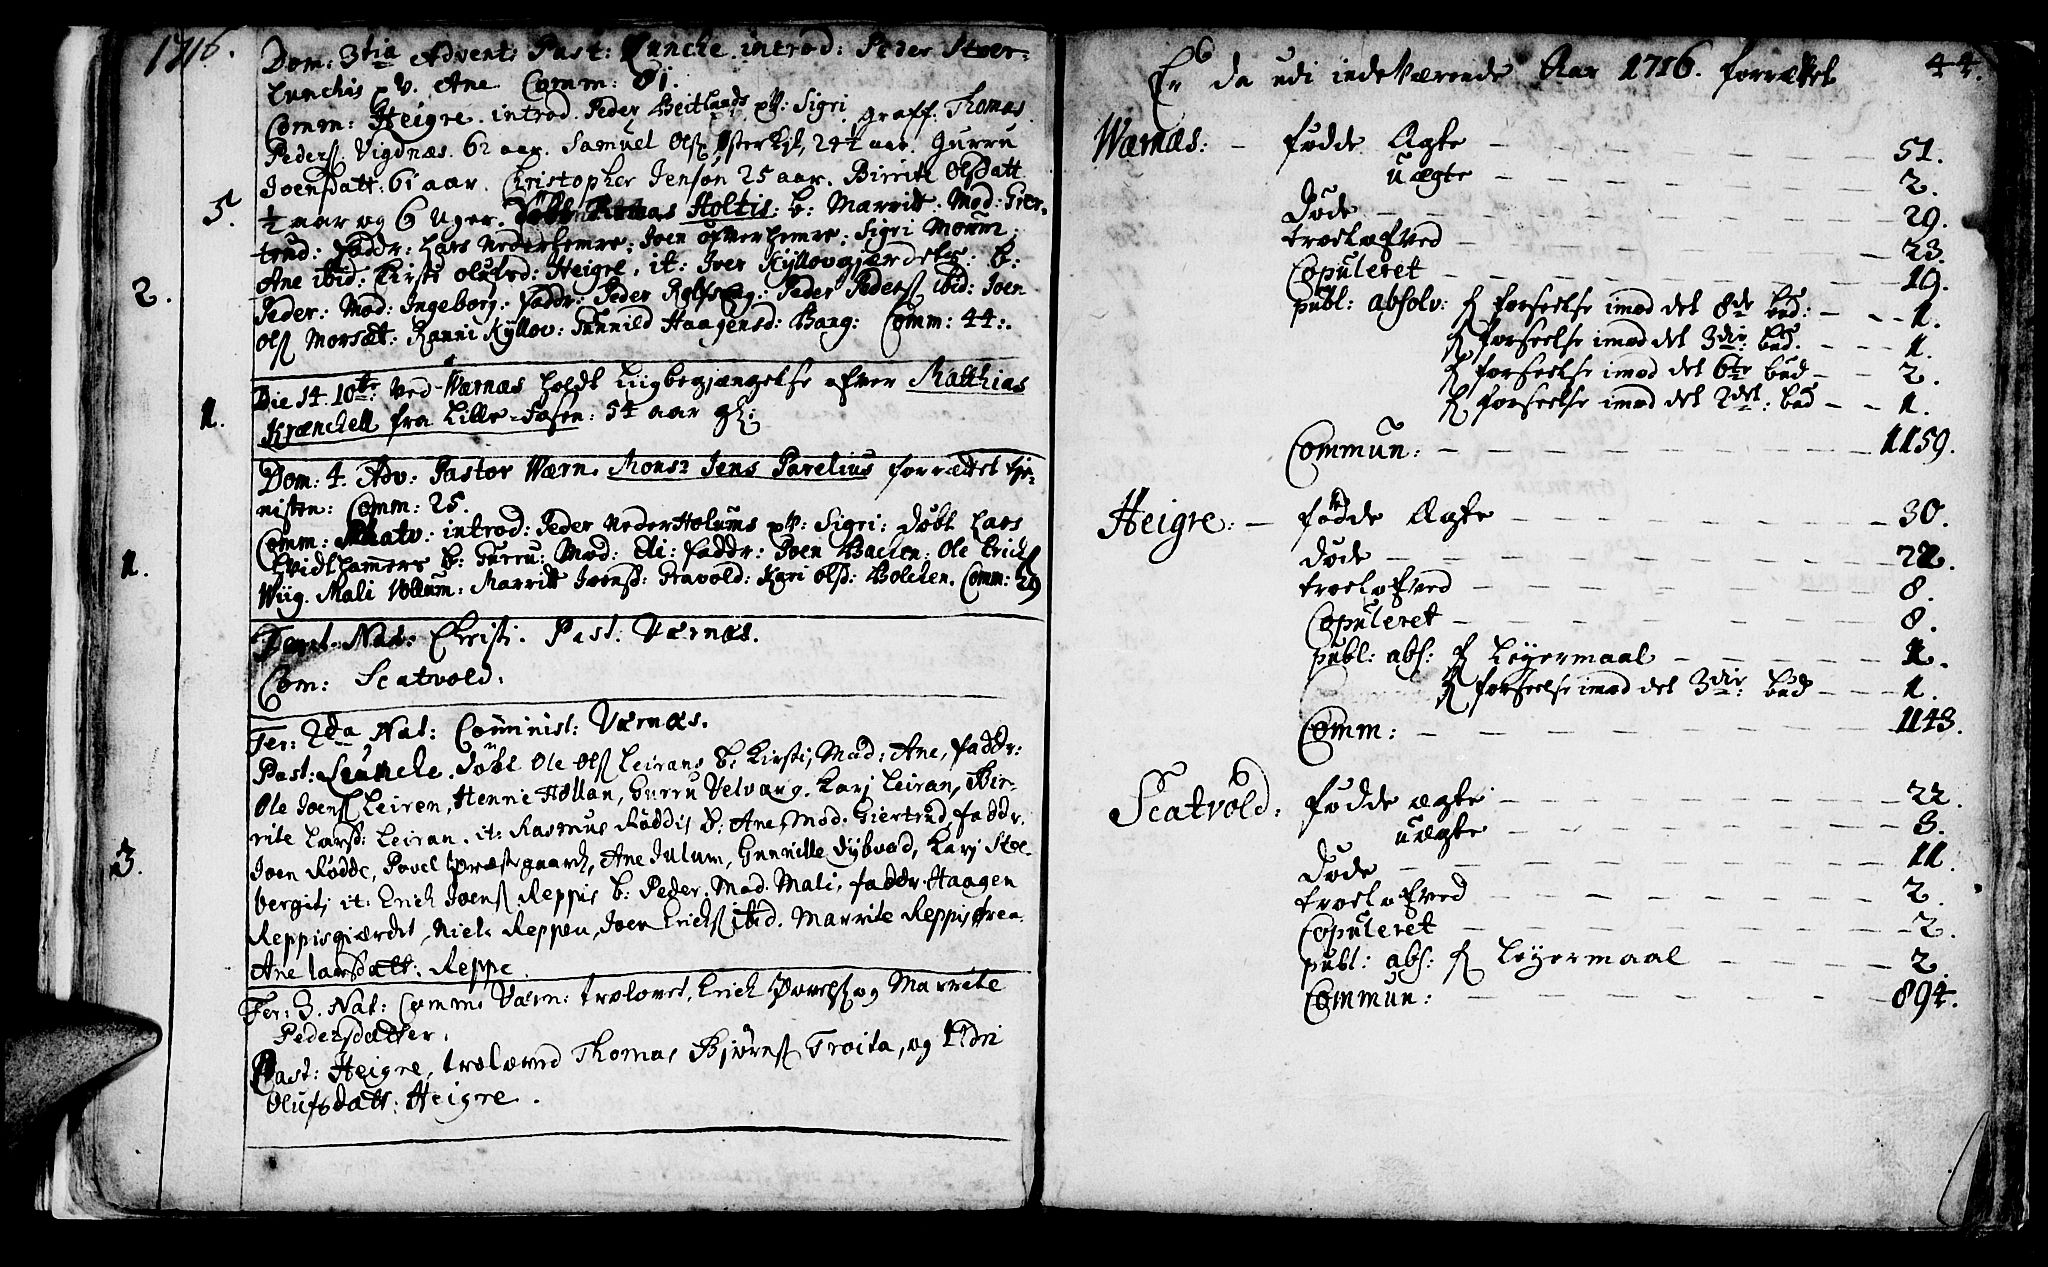 1716.
Dom: 3tia Advent: Past: Luncke. introd: Peder Stoer-
Lunckis p V. Ane Comm: 81.
Comm: Heigre. introd. Peder Beitlands pV: Sigri. graff: Thomas
Peders Vigdnæs. 62 aar. Samuel Ols 24½ aar. Gurru
Joensdatt: 61 aar. Christopher Jenson 25 aar. Birrite Olsdatt
5.
½ aar og 6 Uger. Døbt Holtis: b: Marritt. Mod: Gier-
trud: faddr: Lars Nederhemre: Joen Ofverhemre: Sigri Moum:
Ane ibid: Kirsti Olufsd: Heigre, it: Iver Kyllovgjærdets: b:
2.
Peder: Mod: Ingeborg: faddr: Peder Peder Peders ibid: Joen
Ols Morsæt: Ranni Kyllov: Gunnild Haagensd: Bang: Comm: 44:
Die 14 10br: ved Wærnæs holdt Liigbegjængelse ofver Matthias
1.
Krænchell fra Lille-Fosen: 54 aar gl:
Dom: 4. Adv: Pastor Wærn. Monsr Jens Parelius forrættet tje-
nisten: Comm: 25.
Comm: Skatv: introd: Peder Neder Holums pV: Sigri: døbt Lars
Hvidthamers b: Gurru: Mod: Eli: faddr: Joen Bachen: Ole Erichs
1.
Wiig. Mali Vollum: Marritt Joensd: Kari Olsd: Bolchen. Comm: 29
Nat: Christi. Past: Værnæs.
Com: Scatvold.
Fer: 2da Nat: Comminist: Værnæs.
Past: Luncke. Døbt Ole Ols Leirans b. Kirsti, Mod: Ane, faddr:
Ole Joens Leiren, Henne Hollan, Gurru Velvang. Karj Leiran, Bir-
rite Larsd: Leiran. it: Rasmus Røddis b: Ane, Mod. Giertrud, faddr.
3.
Joen Rødde, Povel Præstegaard, Ane Julum, Gunnille Dybvad, Karj Stoe-
bergit; it: Erich Joens Reppis b: Peder. Mod. Mali, faddr. Haagen
Reppisgiærdet, Niels Reppen, Joen Erichs ibid. Marrite Reppisørea
Ane Larsdatt: Reppe.
Fer: 3. Nat: Comm: Værn: trolovet, Erich Povels og Marrite
Pedersdatter.
Past: Heigre, trolæved Thomas Bjørns Troita, og
Olufsdatt: Heigre.
44.
Er da udi indeværende Aar 1716. forrættet
Wærnæs: - fødde Ægte - 51.
uægte - 2.
Døde - 29.
trolofved - 23.
Copuleret - 19.
publ: absolv: f forseelse imod det 8de bud: - 1.
f forseelse imod det 3die: bud. - 1.
f forseelse imod det 6te bud - 2.
f forseelse imod det 2det: bud - 1.
Commun: - 1159.
Heigre: - fødde Ægte - 30.
døde - 22.
trolofved - 8.
Copuleret - 8.
publ: abs: f Leyermaal - 1.
f forseelse imod det 3die: bud - 1.
Comm: - 1148.
Scatvold: fødde ægte - 22.
uægte - 3.
Døde - 11.
trolofved - 2.
Copuleret - 2.
publ: abs: f Leyermaal - 2.
Commun: - 894.